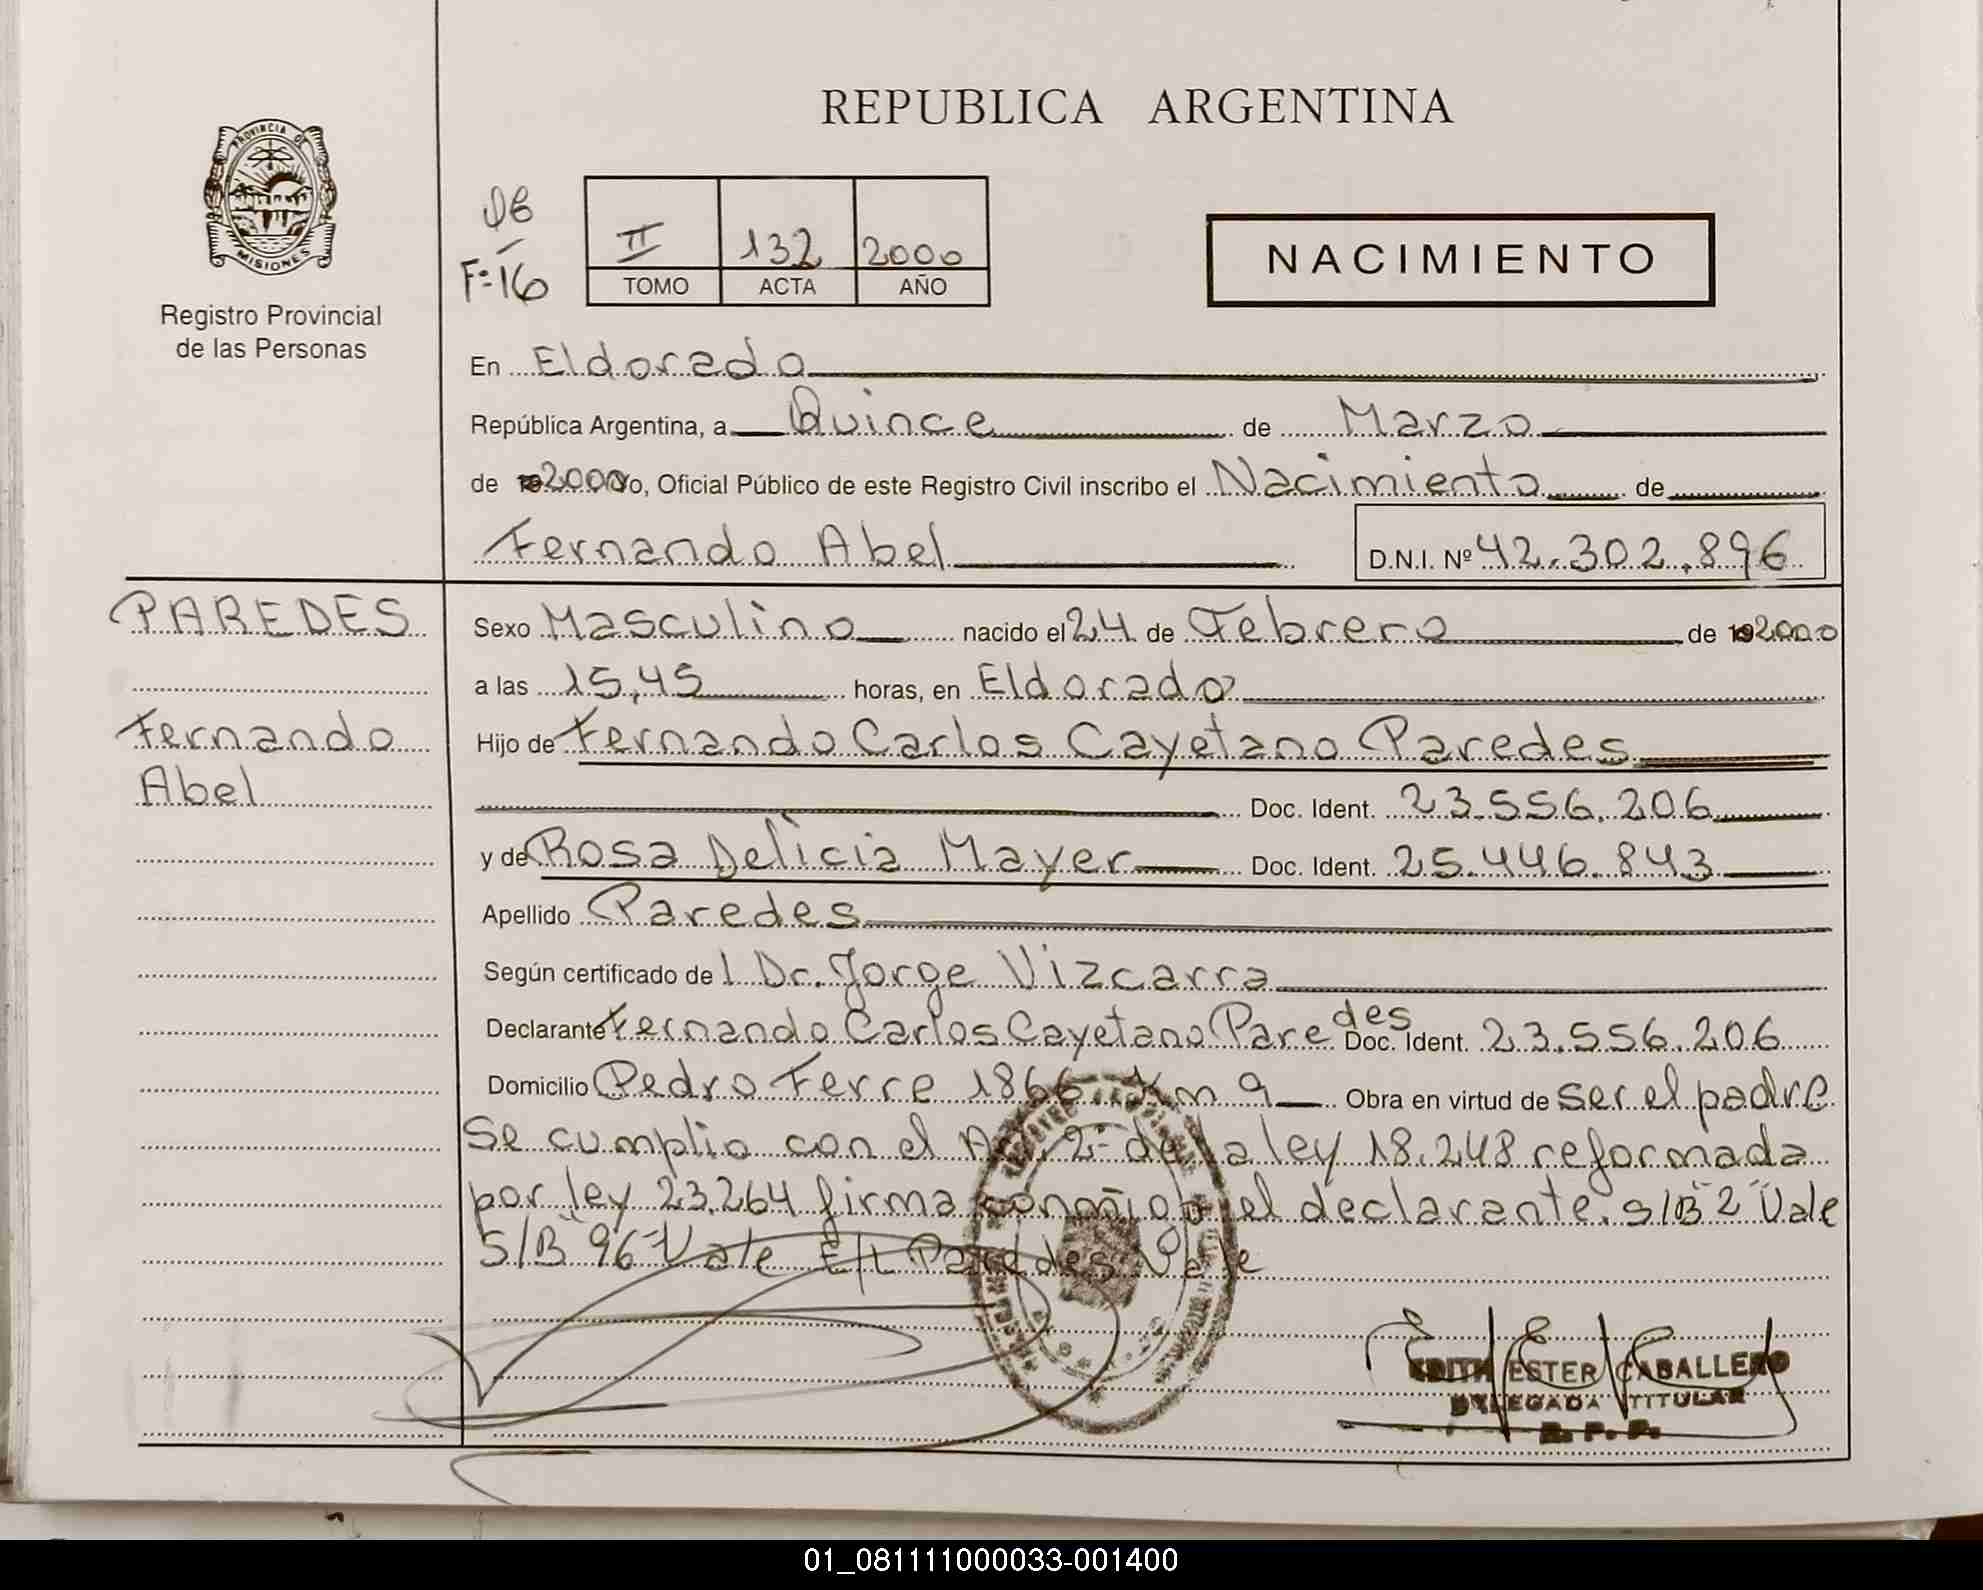 REPUBLICA ARGENTINA
PROVINCIA DE
MISIONES
Registro Provincial
de las Personas
F:16
II 132 2000
TOMO ACTA AÑO
NACIMIENTO
En Eldorado
República Argentina, a Quince de Marzo
de 2000 Yo, Oficial Público de este Registro Civil inscribo el Nacimiento de
Fernando Abel D.N.I. Nº 42.302.896
PAREDES
Fernando
Abel
Sexo Masculino nacido el 24 de Febrero de 192000
a las 15,45 horas, en Eldorado
Hijo de Fernando Carlos Cayetano Paredes
Doc. Ident. 23.556.206
y de Rosa Delicia Mayer Doc. Ident. 25.446.843
Apellido Paredes
Según certificado de l Dr. Jorge Vizcarra
Declarante Fernando Carlos Cayetano Paredes Doc. Ident. 23.556.206
Domicilio Pedro Ferre 1866 Km 9 Obra en virtud de ser el padre
Se cumplio con el Art. 2- de la ley 18.248 reformada
por ley 23.264 firma conmigo el declarante. S/B "2" Vale
S/B "96" Vale E/L Paredes Vale
EDITH ESTER CABALLERO
DELEGADA TITULAR
R. P. P.
01_081111000033-001400